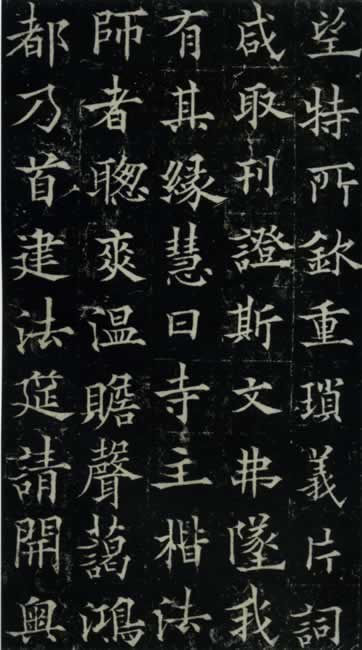 望特所欽重瑣義片詞
咸取刊證斯文弗墜我
有其緣慧日寺主楷法
師者聦爽温贍聲藹鴻
都乃首建法筵請開奧